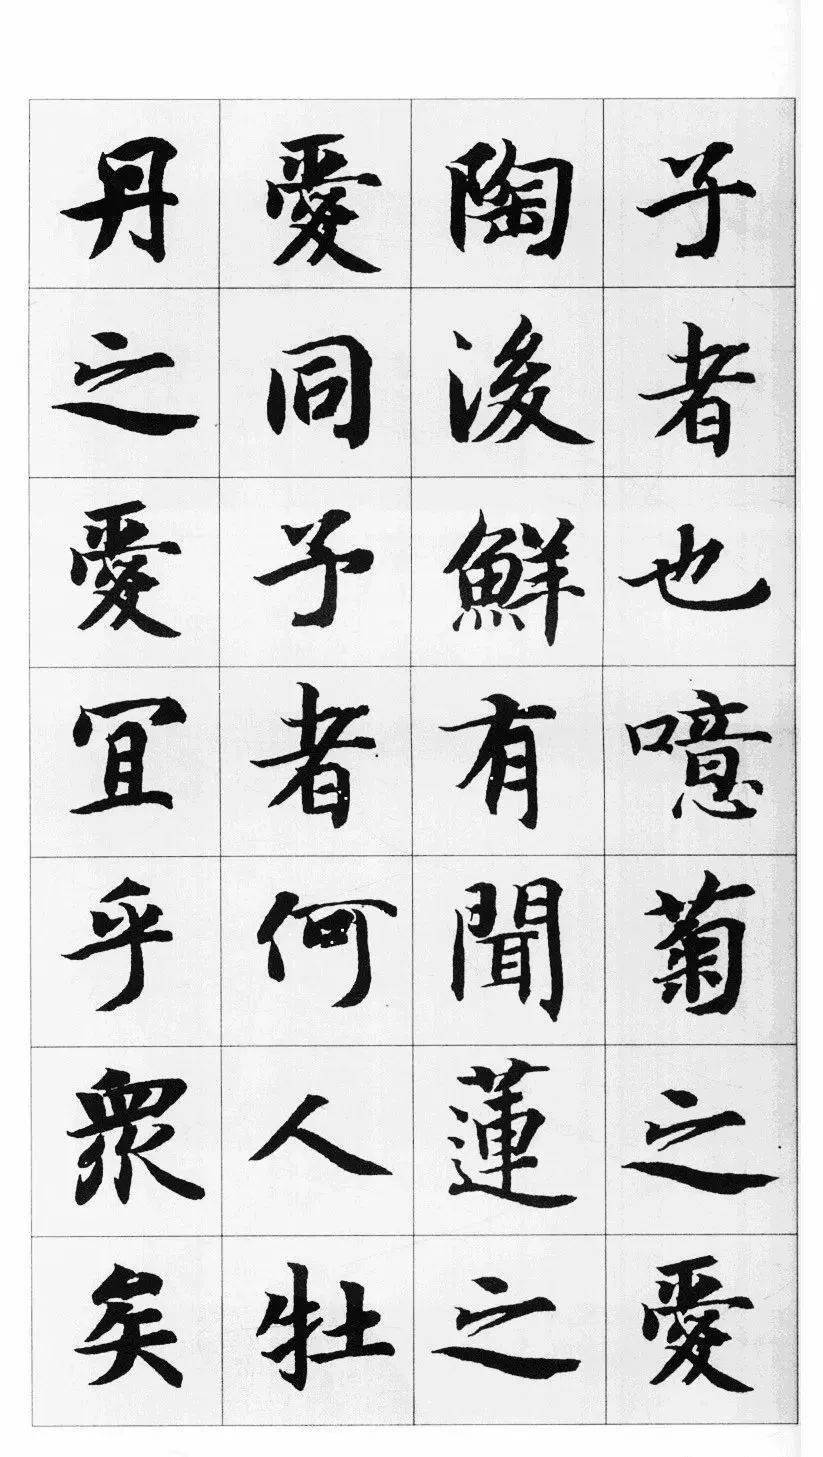 子者也噫菊之愛
陶後鮮有聞蓮之
愛同予者何人牡
丹之愛宜乎衆矣